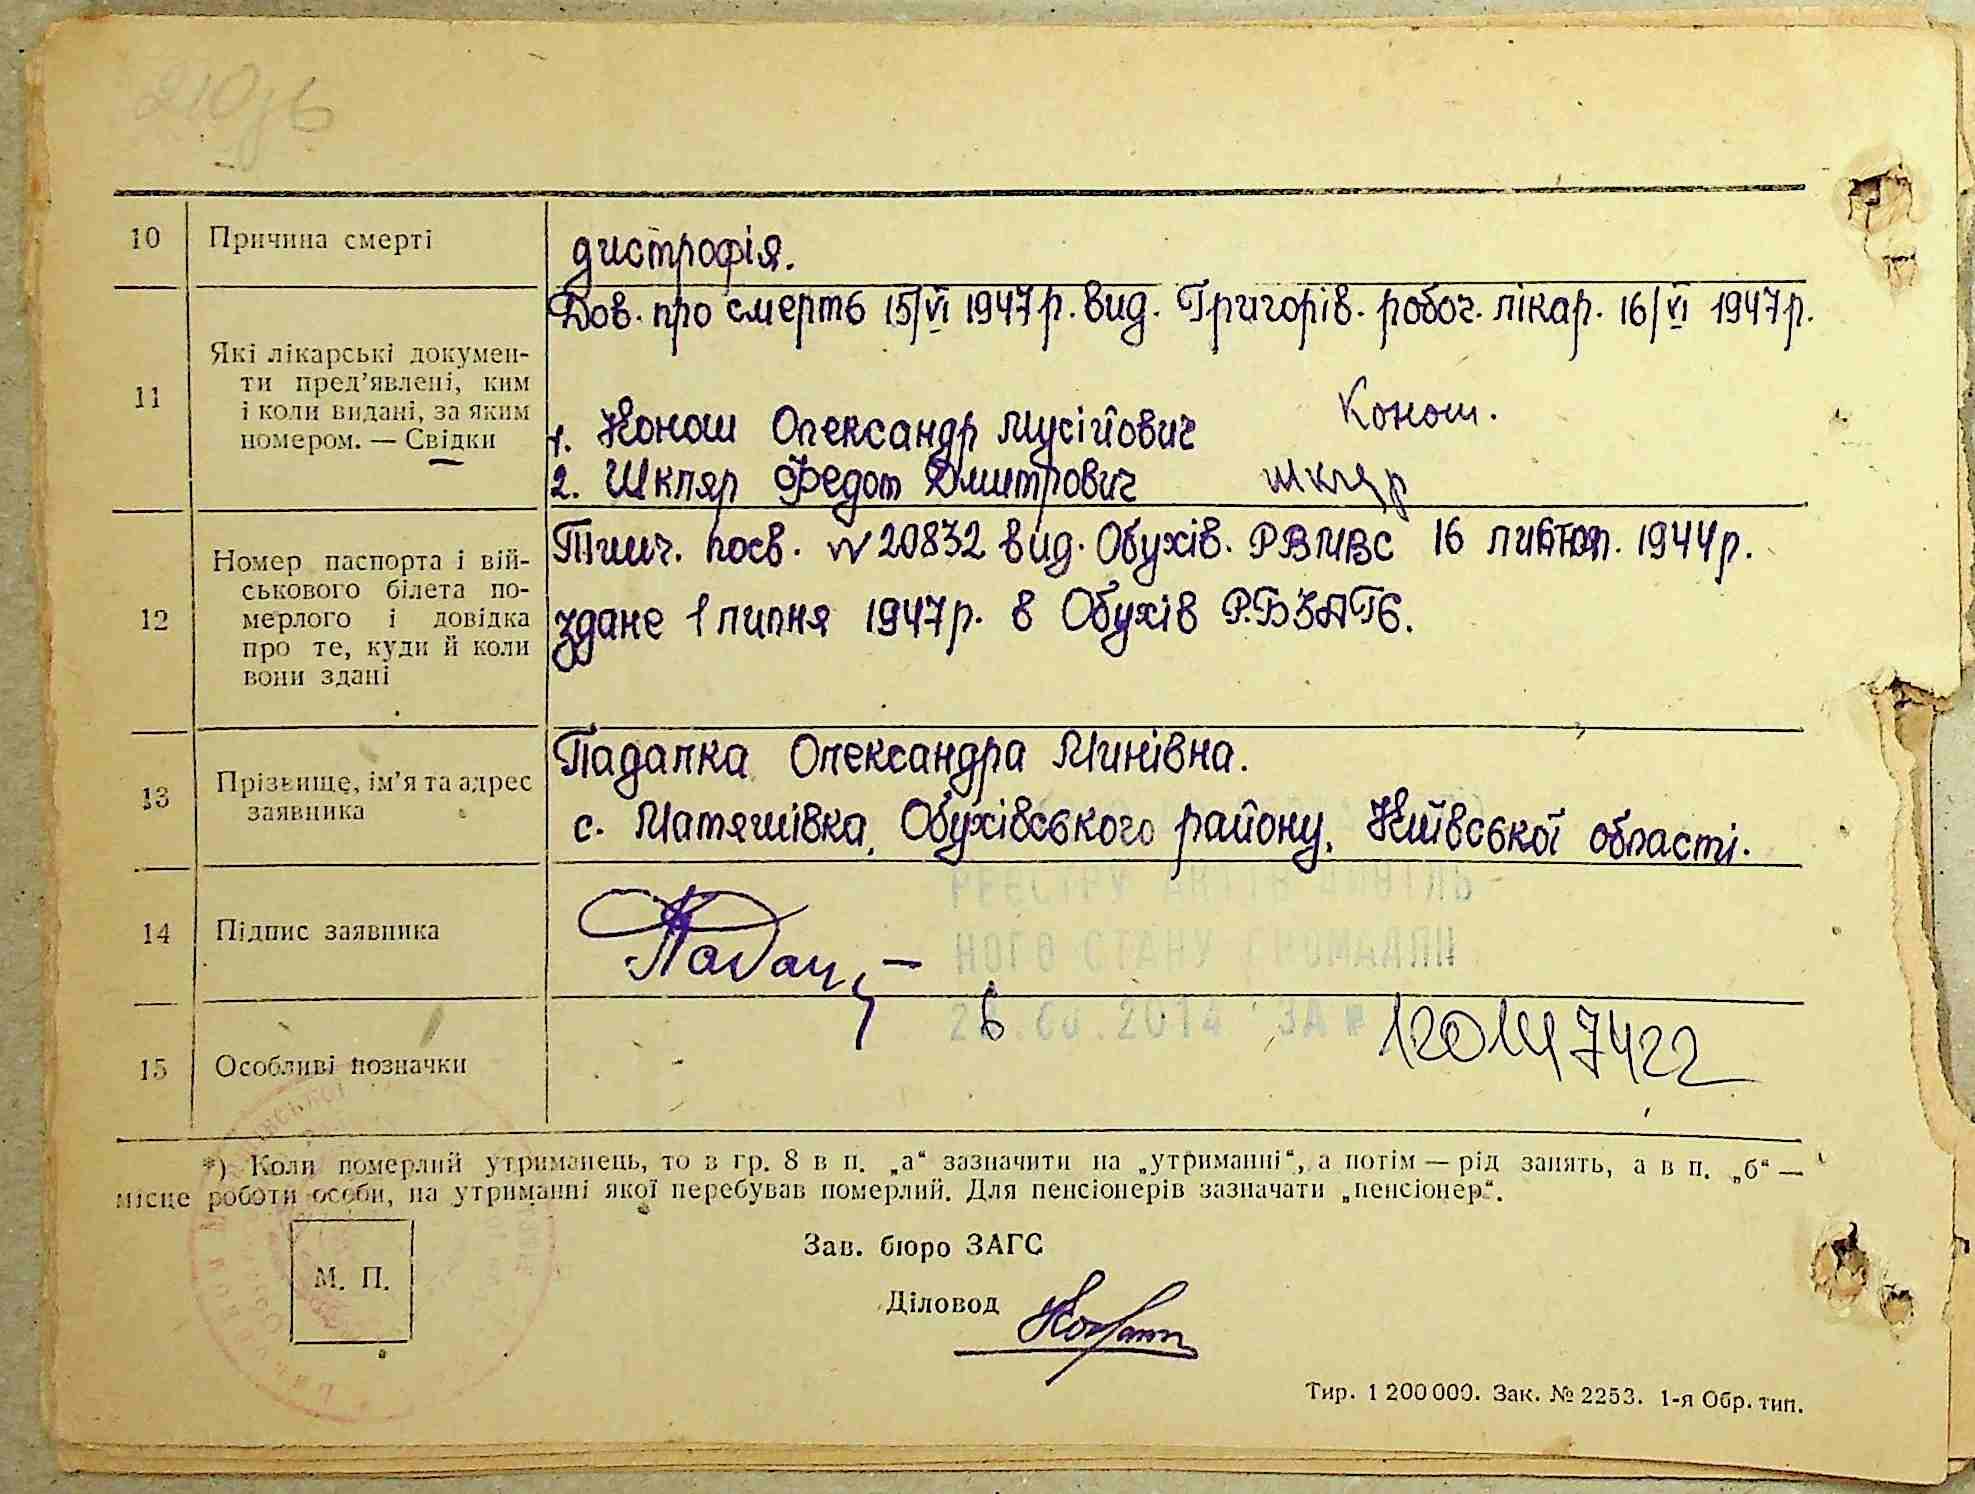 210зв
10 Причина смерті дистрофія.
11 Які лікарські докумен-
ти пред’явлені, ким
і коли видані, за яким
номером. — Свідки
Дов. про смерть 15/VI 1947р. вид. Григорів. робоч. лікар. 16/VI 1947р.
1. Конош Олександр Мусійович Конош.
2. Шкляр Федот Дмитрович Шкляр
12 Номер паспорта і вій-
ськового білета по-
мерлого і довідка
про те, куди й коли
вони здані
Тимч. посв. № 20832 вид. Обухів. РВМВС 16 листоп. 1944р.
здане 1 липня 1947р. в Обухів Р.БЗАГС.
13 Прізвище, ім’я та адрес
заявника
Падалка Олександра Минівна.
с. Матяшівка, Обухівського району, Київської області.
РЕЄСТРУ АКТІВ ЦИВІЛЬ-
14 Підпис заявника
НОГО СТАНУ ГРОМАДЯН
2014 ЗА № 12014 7422
15 Особливі позначки
*) Коли померлий утриманець, то в гр. 8 в п. „а“ зазначити на „утриманні“, а потім — рід занять, а в п. „б“ —
місце роботи особи, на утриманні якої перебував померлий. Для пенсіонерів зазначати „пенсіонер“.
М. П.
Зав. бюро ЗАГС
Діловод
Тир. 1 200 000. Зак. № 2253. 1-я Обр. тип.